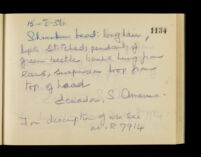 1134
Shrunken head: long hair,
lips stitched, pendants of
green beetle backs hung from
ears, suspension loop from
top of head
Ecuador, S. America.
For description of use see
7914